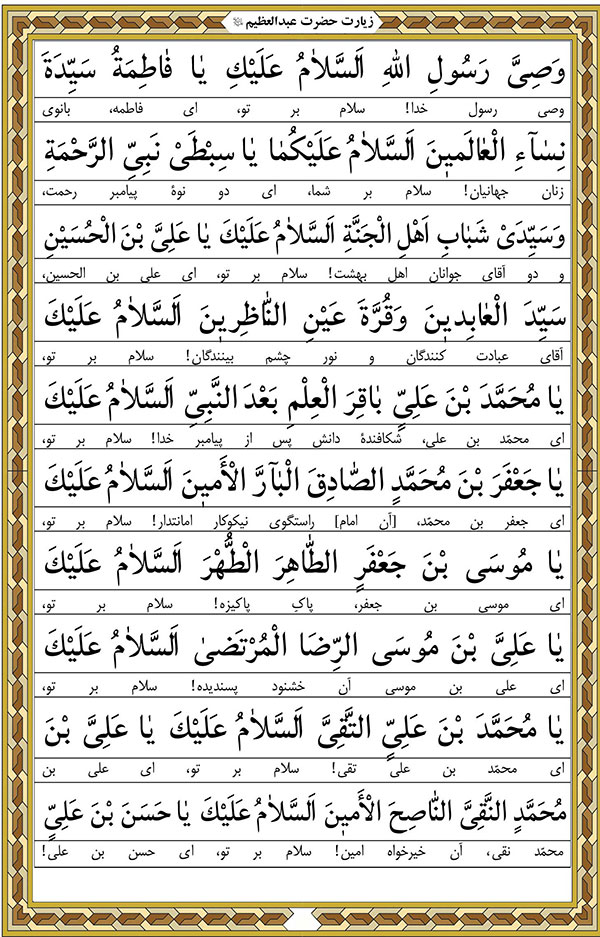 زیارت حضرت عبدالعظیم
وَصِیَّ رَسُولِ اللّٰهِ اَلسَّلاٰمُ عَلَیْكِ یٰا فٰاطِمَةُ سَیِّدَةَ
وصی رسول خدا! سلام بر تو، ای فاطمه، بانوی
نِسٰآءِ الْعٰالَمینَ اَلسَّلاٰمُ عَلَیْکُمٰا یٰا سِبْطَیْ نَبِیِّ الرَّحْمَةِ
زنان جهانیان! سلام بر شما، ای دو نوهٔ پیامبر رحمت،
وَسَیِّدَیْ شَبٰابِ اَهْلِ الْجَنَّةِ اَلسَّلاٰمُ عَلَیْكَ یٰا عَلِیَّ بْنَ الْحُسَیْنِ
و دو آقای جوانان اهل بهشت! سلام بر تو، ای علی بن الحسین،
سَیِّدَ الْعٰابِدینَ وَقُرَّةَ عَیْنِ النّٰاظِرینَ اَلسَّلاٰمُ عَلَیْكَ
آقای عبادت کنندگان و نور چشم بینندگان! سلام بر تو،
یٰا مُحَمَّدَ بْنَ عَلِیٍّ بٰاقِرَ الْعِلْمِ بَعْدَ النَّبِیِّ اَلسَّلاٰمُ عَلَیْكَ
ای محمّد بن علی، شکافندهٔ دانش پس از پیامبر خدا! سلام بر تو،
یٰا جَعْفَرَ بْنَ مُحَمَّدٍ الصّٰادِقَ الْبٰآرَّ الْأَمینَ اَلسَّلاٰمُ عَلَیْكَ
ای جعفر بن محمّد، [آن امام] راستگوی نیکوکار امانتدار! سلام بر تو،
یٰا مُوسَی بْنَ جَعْفَرٍ الطّٰاهِرَ الْطُّهْرَ اَلسَّلاٰمُ عَلَیْكَ
ای موسی بن جعفر، پاکِ پاکیزه! سلام بر تو،
یٰا عَلِیَّ بْنَ مُوسَی الرِّضَا الْمُرْتَضیٰ اَلسَّلاٰمُ عَلَیْكَ
ای علی بن موسی آن خشنود پسندیده! سلام بر تو،
یٰا مُحَمَّدَ بْنَ عَلِیٍّ التَّقِیَّ اَلسَّلاٰمُ عَلَیْكَ یٰا عَلِیَّ بْنَ
ای محمّد بن علی تقی! سلام بر تو، ای علی بن
مُحَمَّدٍ النَّقِیَّ النّٰاصِحَ الْأَمینَ اَلسَّلاٰمُ عَلَیْكَ یٰا حَسَنَ بْنَ عَلِیٍّ
محمّد نقی، آن خیرخواه امین! سلام بر تو، ای حسن بن علی!